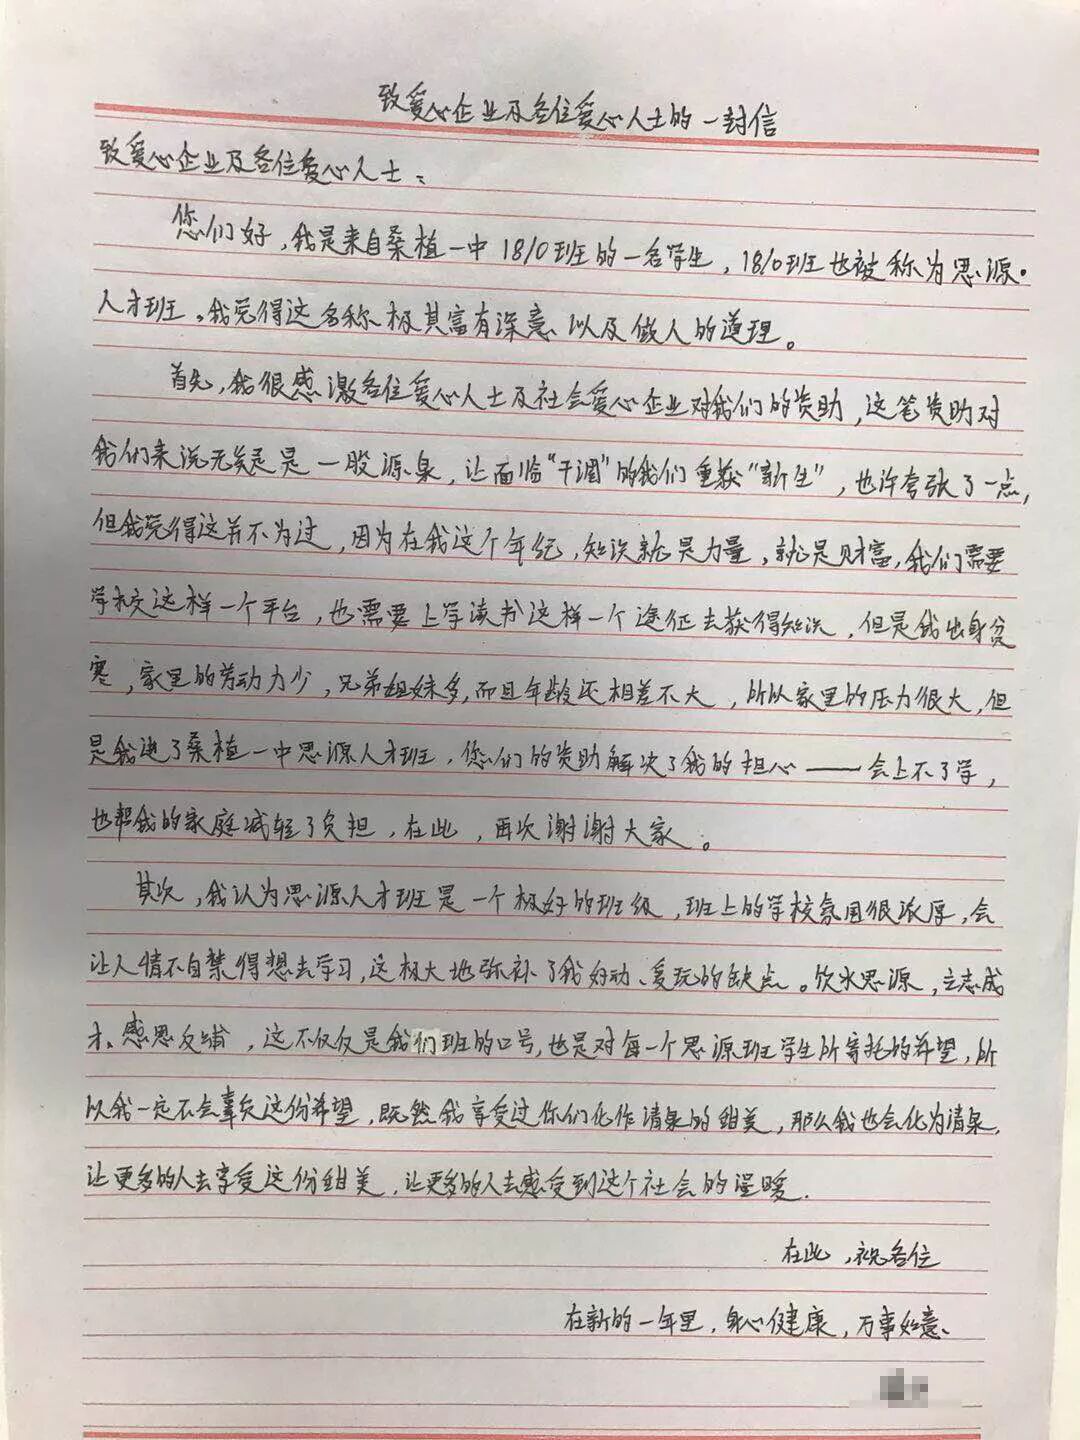 致爱心企业及各位爱心人士的一封信
致爱心企业及各位爱心人士：
您们好，我是来自桑植一中1810班的一名学生，1810班也被称为思源·
人才班。我觉得这名称极其富有深意以及做人的道理。
首先，我很感激各位爱心人士及社会爱心企业对我们的资助，这笔资助对
我们来说无疑是一股源泉，让面临“干涸”的我们重获“新生”，也许夸张了一点，
但我觉得这并不为过，因为在我这个年纪，知识就是力量，就是财富，我们需要
学校这样一个平台，也需要上学读书这样一个途径去获得知识，但是我出身贫
寒，家里的劳动力少，兄弟姐妹多，而且年龄还相差不大，所以家里的压力很大，但
是我进了桑植一中思源人才班，您们的资助解决了我的担心——会上不了学，
也帮我的家庭减轻了负担，在此，再次谢谢大家。
其次，我认为思源人才班是一个极好的班级，班上的学校氛围很浓厚，会
让人情不自禁得想去学习，这极大地弥补了我好动、爱玩的缺点。饮水思源，立志成
才、感恩反哺，这不仅仅是我们班的口号，也是对每一个思源班学生所寄托的希望，所
以我一定不会辜负这份希望，既然我享受过你们化作清泉的甜美，那么我也会化为清泉，
让更多的人去享受这份甜美，让更多的人去感受到这个社会的温暖．
在此，祝各位
在新的一年里，身心健康，万事如意、